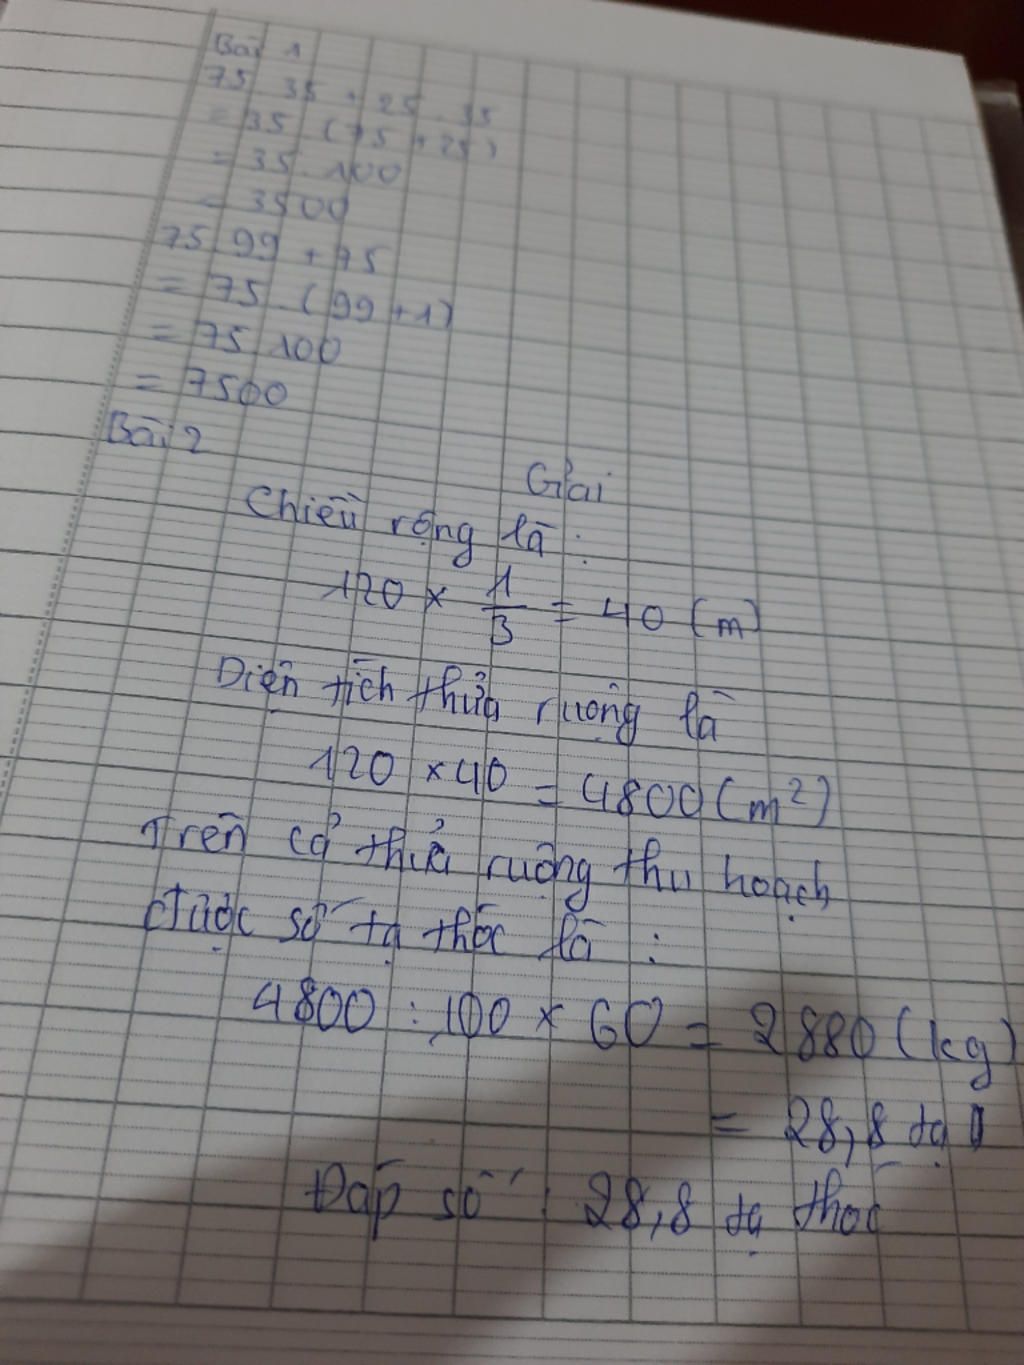 Bài 1
75 . 35 + 25 . 35
= 35 . (75 + 25)
= 35 . 100
= 3500
75 . 99 + 75
= 75 . (99 + 1)
= 75 . 100
= 7500
Bài 2
Giải
Chiều rộng là :
120 × 1/3 = 40 (m)
Diện tích thửa ruộng là
120 × 40 = 4800 (m²)
Trên cả thửa ruộng thu hoạch
được số tạ thóc là :
4800 : 100 × 60 = 2880 (kg)
= 28,8 tạ
Đáp số : 28,8 tạ thóc